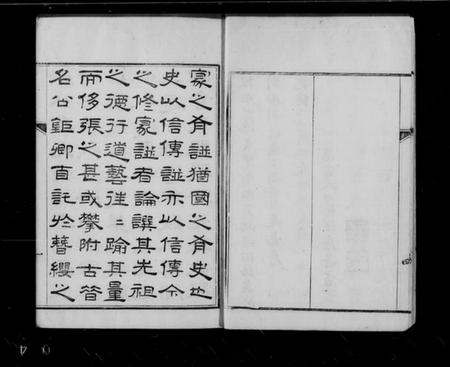 家之有譜猶國之有史也
史以信傳譜亦以信傳今
之修家譜者論譔其先祖
之德行道藝往〻踰其量
而侈張之甚或攀附古昔
名公鉅卿自託於簪纓之